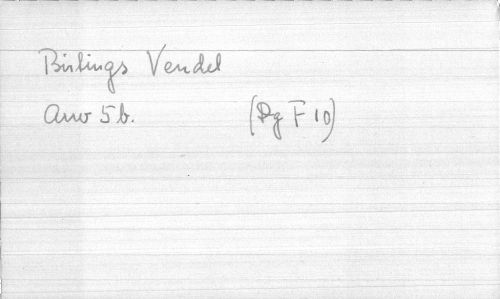 Birlings Vendel
Anv 5b. (Dg F 10)